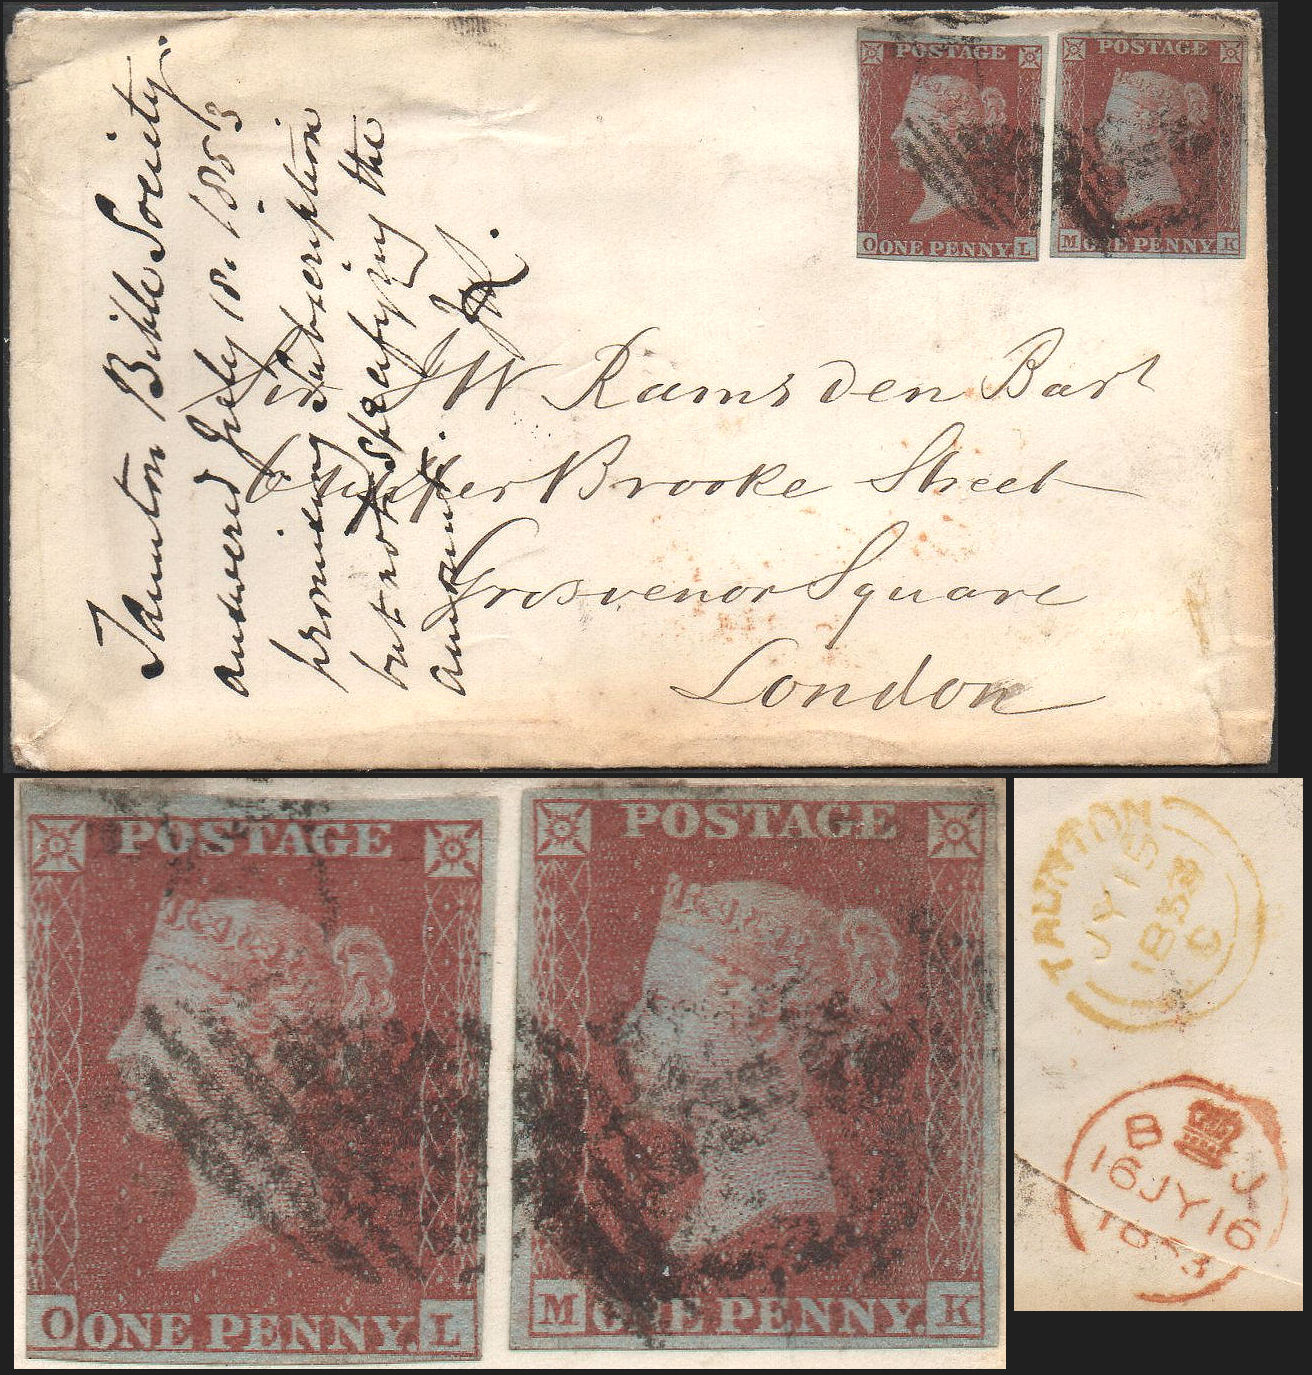 POSTAGE
ONE PENNY.
O L
POSTAGE
ONE PENNY.
M K
Taunton Bible Society.
answered July 18. 1853
promising Subscription
but not Specifying the
amount.
Sir J W Ramsden Bart
Upper Brooke Street
Grosvenor Square
London
POSTAGE
O ONE PENNY. L
POSTAGE
M ONE PENNY. K
TAUNTON
JY 15
1853
C
B J
16 JY 16
1853